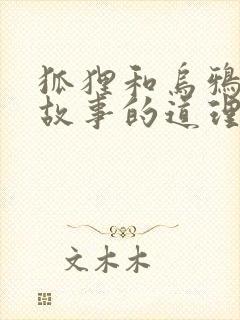 狐狸和乌鸦
故事的道理
文木木